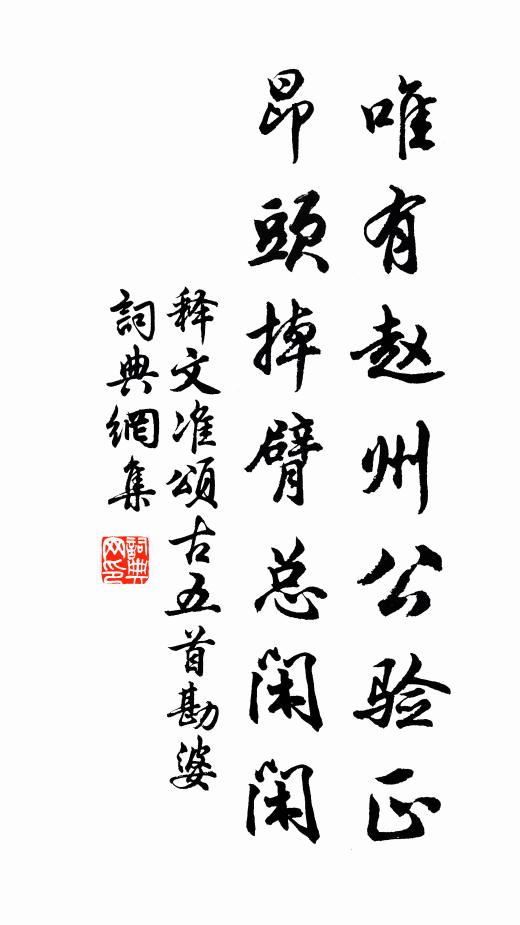 唯有赵州公验正
昂頭掉臂总闲闲
释文准頌古五首勘婆
詞典網集
詞典网印